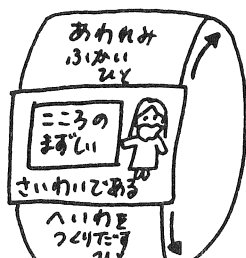 あわれみ
ふかい
ひと
こころの
まずしい
さいわいである
へいわを
つくりだす
ひと